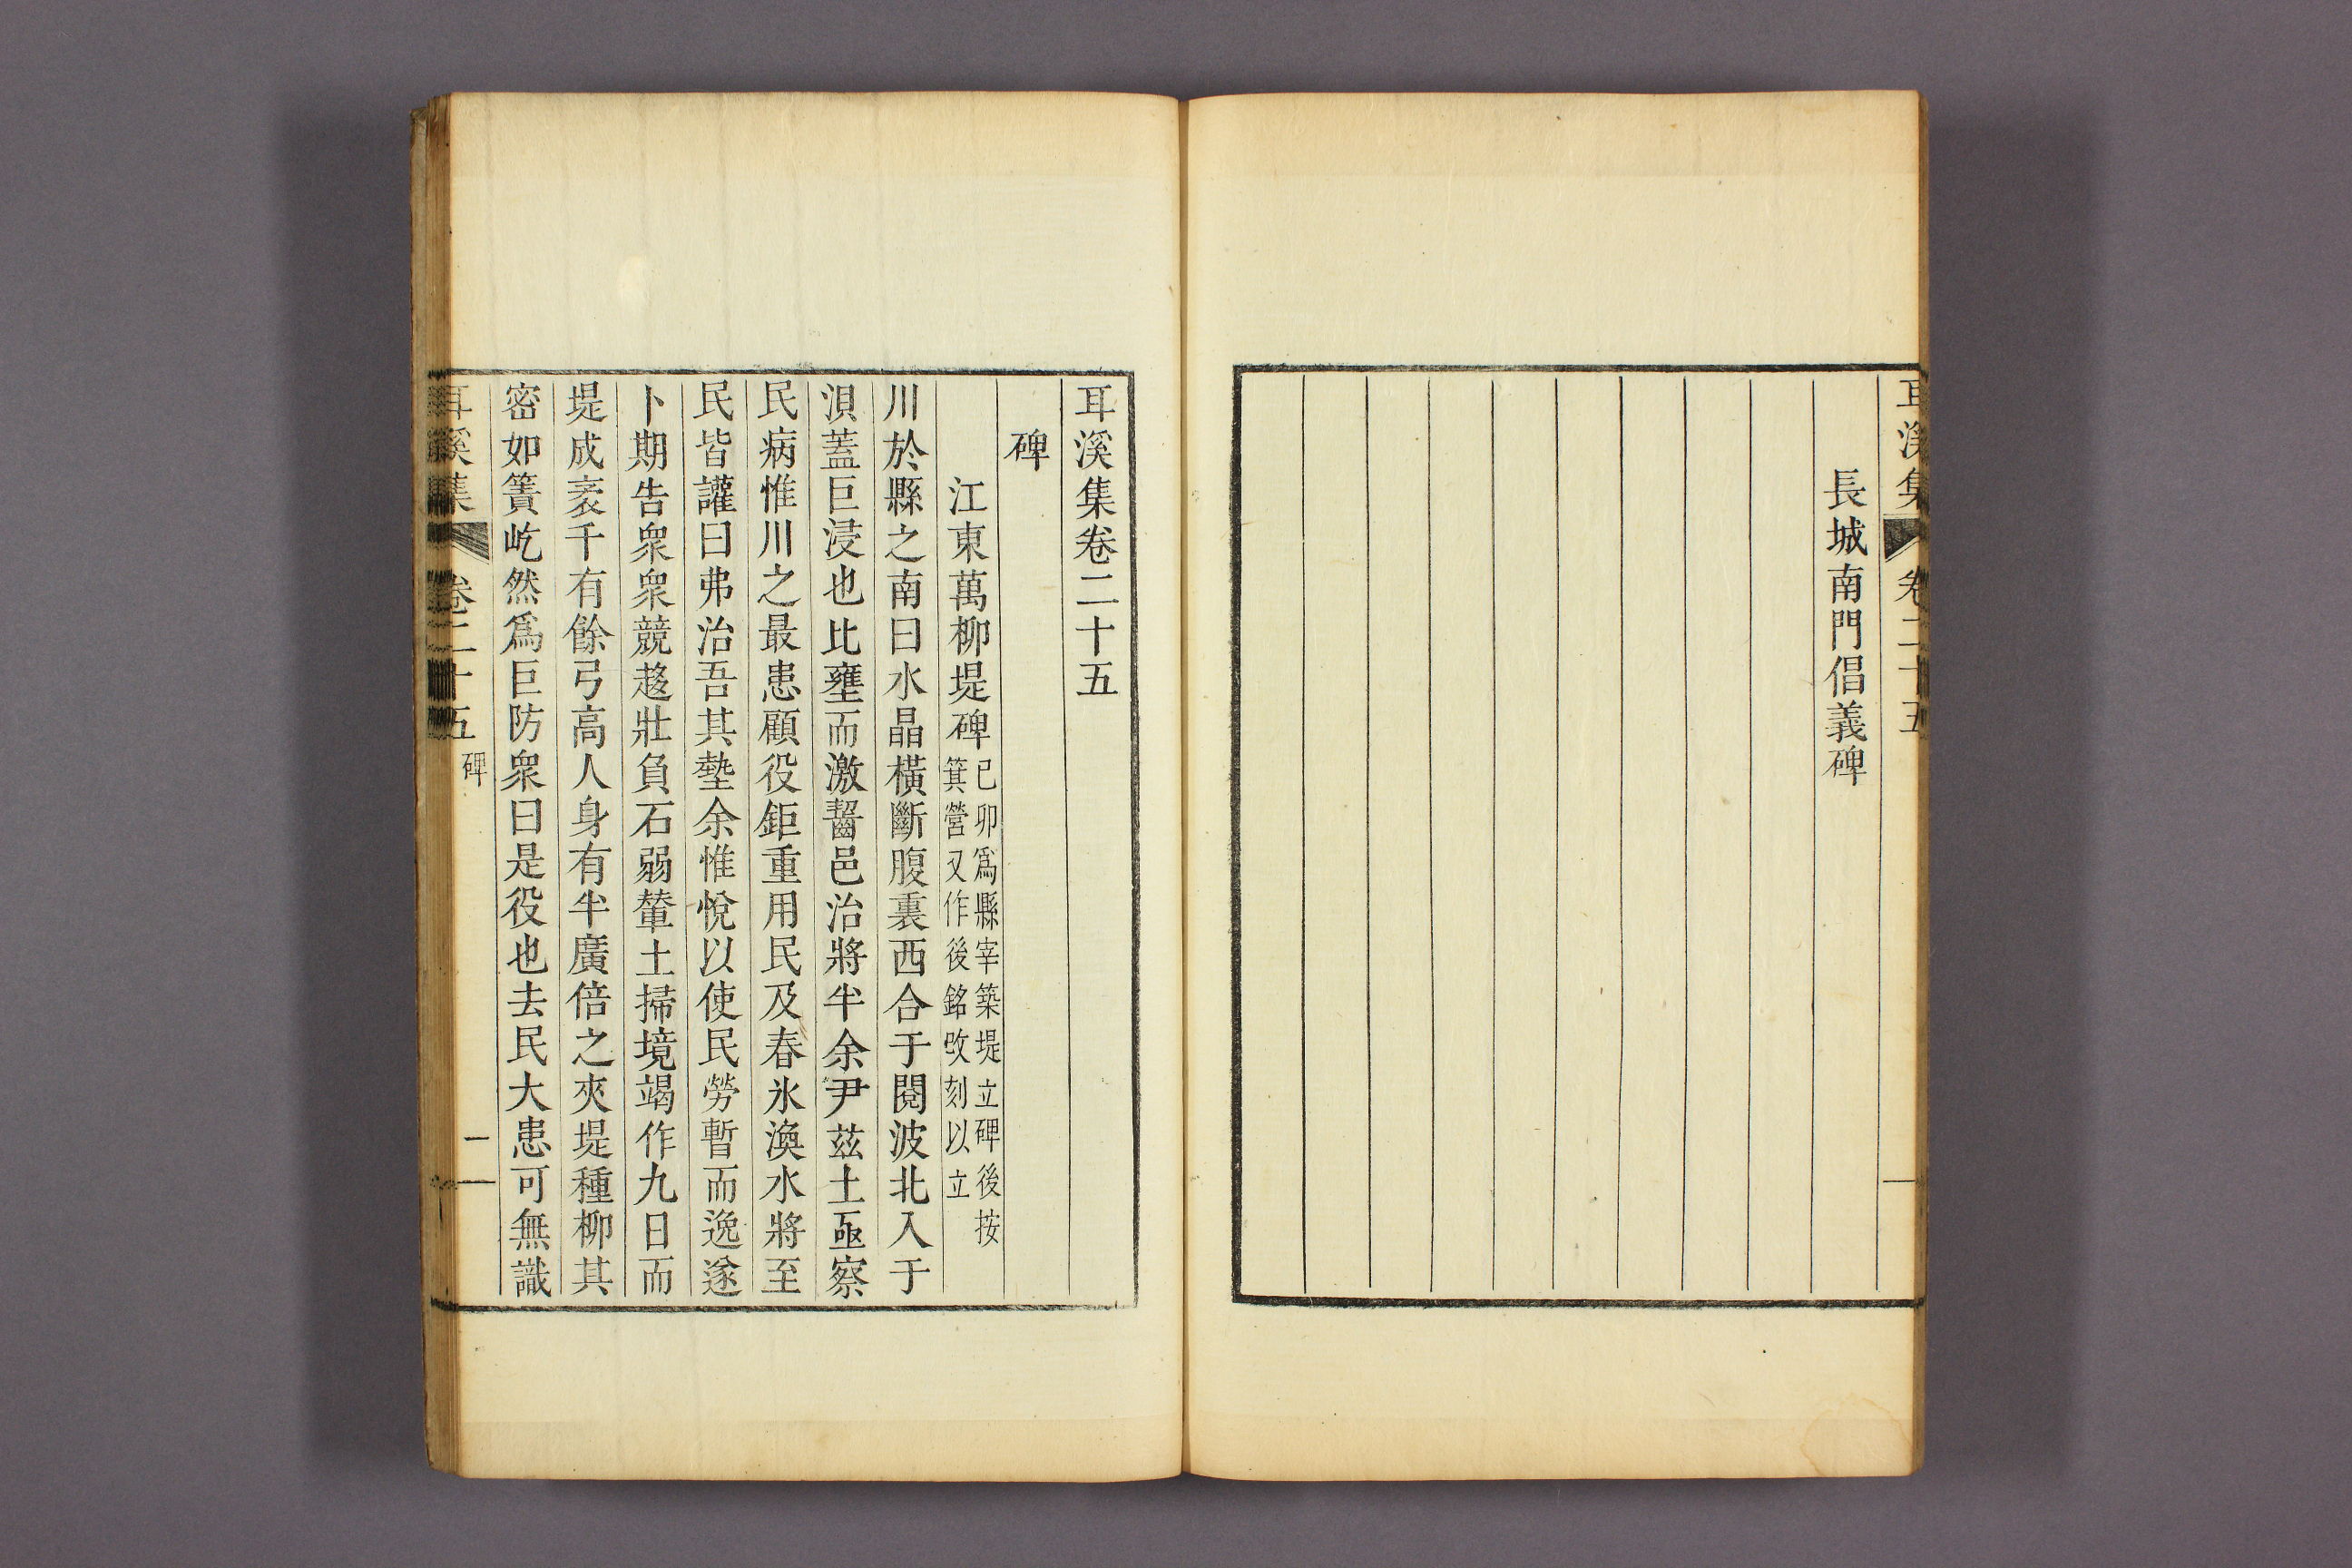 耳溪集 卷二十五
長城南門倡義碑
耳溪集卷二十五
碑
江東萬柳堤碑
已卯爲縣宰築堤立碑後按
箕營又作後銘改刻以立
川於縣之南曰水晶橫斷腹裏西合于閱波北入于
浿蓋巨浸也比壅而激齧邑治將半余尹茲土亟察
民病惟川之最患顧役鉅重用民及春氷渙水將至
民皆讙曰弗治吾其墊余惟悅以使民勞暫而逸遂
卜期告衆衆競趍壯負石弱輦土掃境竭作九日而
堤成袤千有餘弓高人身有半廣倍之夾堤種柳其
密如簀屹然爲巨防衆曰是役也去民大患可無識
耳溪集 卷二十五 碑 二